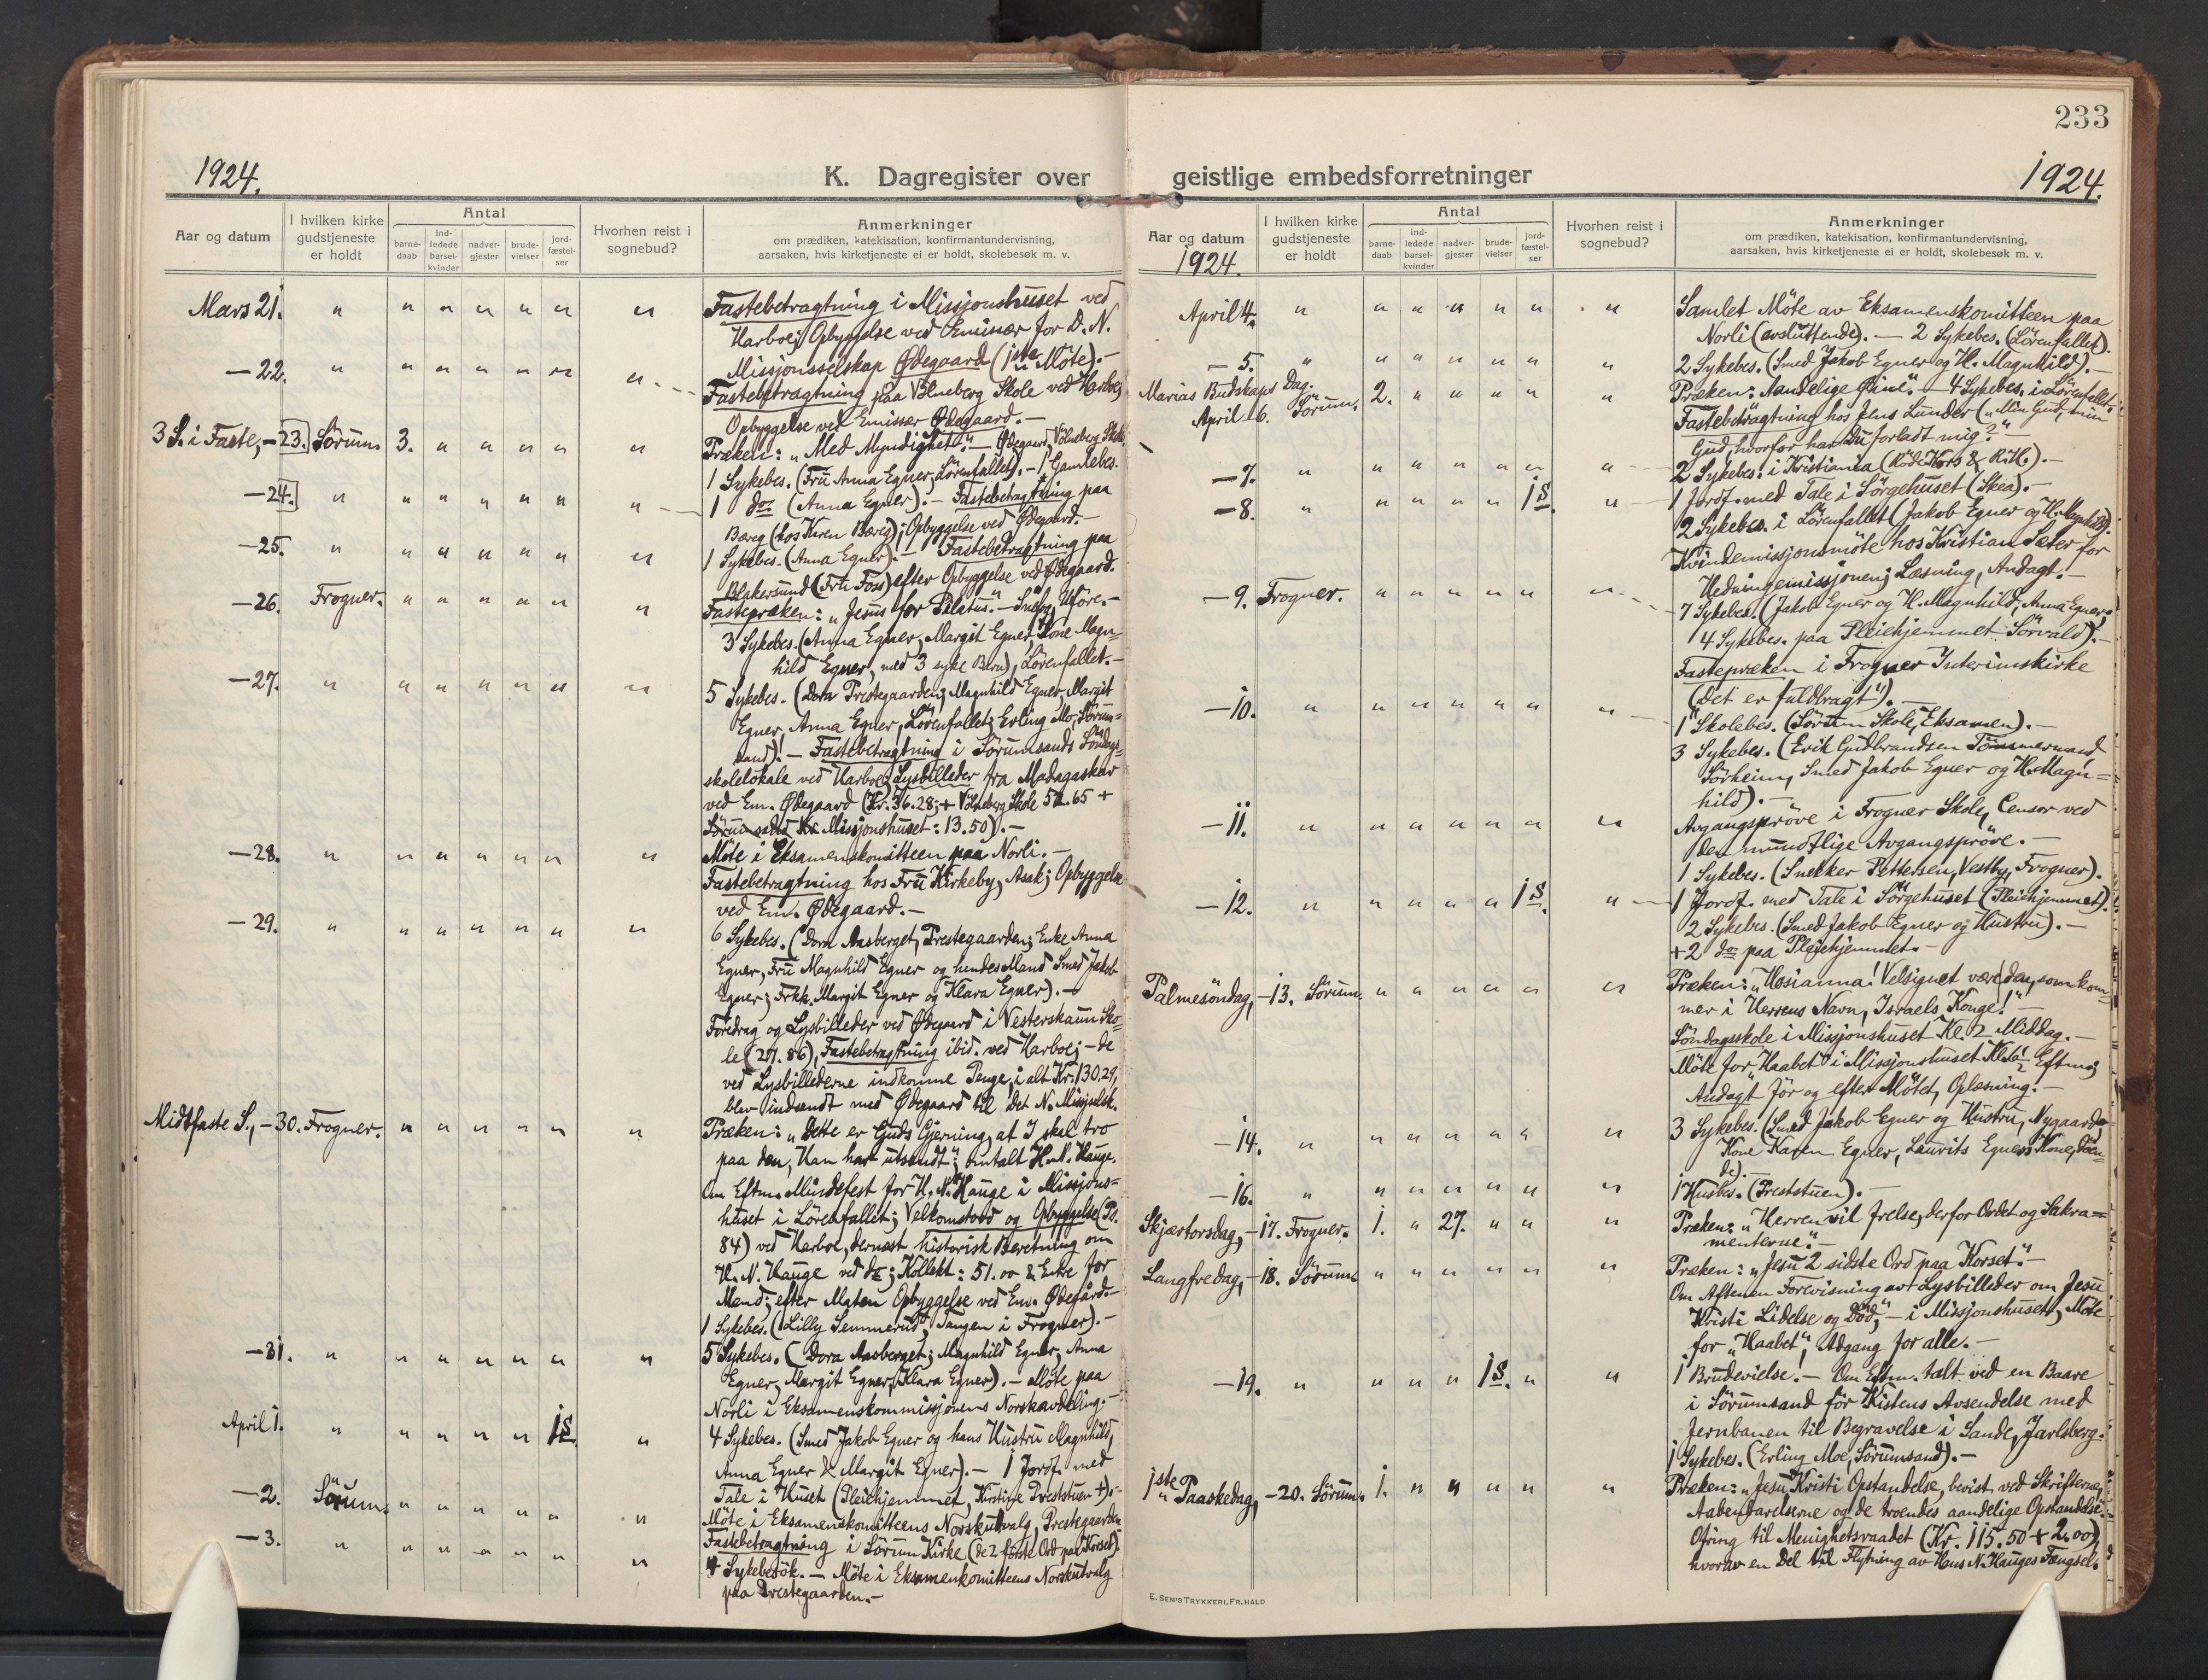 233
1924.
K. Dagregister over
geistlige embedsforretninger
1924.
Aar og datum
I hvilken kirke gudstjeneste er holdt
Antal
barnedaab
indledede barselkvinder
nadvergjester
brudevielser
jordfæstelser
Hvorhen reist i sognebud?
Anmerkninger
om prædiken, katekisation, konfirmantundervisning,
aarsaken, hvis kirketjeneste ei er holdt, skolebesøk m. v.
Mars 21. " " " " " " " Fastebetragtning i Missjonshuset ved
Harboe; Opbyggelse ved Eminær for D. N.
Missjonsselskap Ødegaard (1ste Möte).—
—22. " " " " " " " Fastebetragtning paa Völneberg Skole ved Harboe;
Opbyggelse ved Emissær Ødegaard.—
3 S. i Faste, —23. Sörum. 3. " " " " " Præken: „Med Myndighet".— Ødegaard, Völneberg Skole.
1 Sykebes. (Fru Anna Egner, Lörenfallet).— 1 Gamlebes.
—24. " " " " " " " 1 do (Anna Egner).— Fastebetragtning paa
Bæreg (hos Karen Bæreg); Opbyggelse ved Ødegaard.—
—25. " " " " " " " 1 Sykebes. (Anna Egner).— Fastebetragtning paa
Blakersund (Fru Foss) efter Opbyggelse ved Ødegaard.
—26. Frogner. " " " " " " Fastepræken: „Jesus for Pilatus".— Snefog, Uføre.—
3 Sykebes. (Anna Egner, Margit Egner, Kone Magn-
hild Egner, med 3 syke Barn), Lörenfallet.—
—27. " " " " " " " 5 Sykebes. (Dora Prestegaarden; Magnhild Egner, Margit
Egner, Anna Egner, Lörenfallet; Erling Mo, Sörum-
sand).— Fastebetragtning i Sörumsands Söndags-
skolelokale ved Harboe; Lysbilleder fra Madagaskar
ved Em. Ødegaard (Kr. 36.28; + Völneberg Skole 52.65 +
Missjonshuset: 13.50).—
—28. " " " " " " " Möte i Eksamenskomitteen paa Norli.—
Fastebetragtning hos Fru Kirkeby, Asak; Opbyggelse
ved Em. Ødegaard.—
—29. " " " " " " " 6 Sykebes. (Dora Aasberget, Prestegaarden; Enke Anna
Egner, Fru Magnhild Egner og hendes Mand Smed Jakob
Egner; Frkk. Margit Egner og Klara Egner).—
Foredrag og Lysbilleder ved Ødegaard i Vesterskaun Sko-
le (27.86), Fastebetragtning ibid. ved Harboe; — de
ved Lysbillederne indkomne Penge, i alt Kr. 130.29,
blev indsendt med Ødegaard til det N. Missjselsk.
Midtfaste S., —30. Frogner. " " " " " " Præken: „Dette er Guds Gjerning, at I skal tro
paa den, Han har utsendt"; omtalt H. N. Hauge.
Om Eftm. Mindefest for H. N. Hauge i Missjons-
huset i Lörenfallet; Velkomstord og Opbyggelse (Ps.
84) ved Harboe, dernæst historisk Beretning om
H. N. Hauge ved do; Kollekt: 51.00 & Entre for
Mænd; efter Maten Opbyggelse ved Em. Ødegård.—
1 Sykebes. (Lilly Semmerud, Tangen i Frogner).—
—31. " " " " " " " 5 Sykebes. (Dora Aasberget; Magnhild Egner, Anna
Egner, Margit Egner, Klara Egner).— Möte paa
Norli i Eksamenskommissjonens Norskavdeling.—
April 1. " " " " " 1 S. " 4 Sykebes. (Smed Jakob Egner og hans Hustru Magnhild,
Anna Egner & Margit Egner).— 1 Jordf. med
Tale i Huset (Pleiehjemmet, Kirstine Preststuen +).—
—2. Sörum. " " " " " " Möte i Eksamenskomitteens Norskutvalg, Prestegaarden
Fastebetragtning i Sörum Kirke (de 2 første Ord paa Korset).
—3. " " " " " " " 4 Sykebesök.— Möte i Eksamenkomitteens Norskutvalg
paa Prestegaarden.—
Aar og datum
1924.
I hvilken kirke gudstjeneste er holdt
Antal
barnedaab
indledede barselkvinder
nadvergjester
brudevielser
jordfæstelser
Hvorhen reist i sognebud?
Anmerkninger
om prædiken, katekisation, konfirmantundervisning,
aarsaken, hvis kirketjeneste ei er holdt, skolebesøk m. v.
April 4. " " " " " " " Samlet Möte av Eksamenskomitteen paa
Norli (avsluttende).— 2 Sykebes. (Lörenfallet).
—5. " " " " " " " 2 Sykebes. (Smed Jakob Egner og H. Magnhild).—
Marias Budskaps Dag.
April 6. Sörum. 2. " " " " " Præken: „Aandelige Øine".— 4 Sykebes. i Lörenfallet.
Fastebetragtning hos Jens Lunder („Min Gud, min
Gud, hvorfor har Du forladt mig?"—
—7. " " " " " " " 2 Sykebes. i Kristiania (Röde Kors & R.H.).—
—8. " " " " " 1 S. " 1 Jordf. med Tale i Sörgehuset (Skea).—
2 Sykebes. i Lörenfallet (Jakob Egner og H. Magnhild).
Kvindemissjonsmöte hos Kristian Sæter for
Hedningemissjonen; Læsning, Andagt.—
—9. Frogner. " " " " " " 7 Sykebes. (Jakob Egner og H. Magnhild, Anna Egner,
4 Sykebes. paa Pleiehjemmet Sörvald).—
Fastepræken i Frogner Interimskirke
(„Det er fuldbragt").—
—10. " " " " " " " 1 Skolebes. (Sörum Skole, Eksamen).—
3 Sykebes. (Erik Gudbrandsen Tömmermand,
Sörheim, Smed Jakob Egner og H. Magn-
hild).—
—11. " " " " " " " Avgangspröve i Frogner Skole, Censor ved
den mundtlige Avgangspröve.—
1 Sykebes. (Snekker Pettersen, Vestby, Frogner).
—12. " " " " " 1 S. " 1 Jordf. med Tale i Sörgehuset (Pleiehjemmet).
2 Sykebes. (Smed Jakob Egner og Hustru).—
+ 2 do paa Pleiehjemmet.—
Palmesöndag, —13. Sörum. " " " " " " Præken: „Hosianna! Velsignet være den, som kom-
mer i Herrens Navn, Israels Konge!"—
Söndagsskole i Missjonshuset Kl. 2 Middag.—
Möte for „Haabet" i Missjonshuset Kl. 6½ Eftm;
Andagt för og efter Mötet, Oplæsning.—
—14. " " " " " " " 3 Sykebes. (Smed Jakob Egner og Hustru, Nygaard,
Kone Karen Egner, Laurits Egners Kone, döen-
de).—
—16. " " " " " " " 1 Husbes. (Preststuen).—
Skjærtorsdag, —17. Frogner. 1. " 27. " " " Præken: „Herren vil frelse, derfor Ordet og Sakra-
menterne".—
Langfredag, —18. Sörum. " " " " " " Præken: „Jesu 2 sidste Ord paa Korset".—
Om Aftenen Forevisning av Lysbilleder om Jesu
Kristi Lidelse og Död, — i Missjonshuset, Möte
for „Haabet", Adgang for alle.—
—19. " " " " 1 S. " " 1 Brudevielse.— Om Eftm. talt ved en Baare
i Sörumsand för Kistens Avsendelse med
Jernbanen til Begravelse i Sande, Jarlsberg.
1 Sykebes. (Erling Moe, Sörumsand).—
1ste Paaskedag, —20. Sörum. 1. " " " " " Præken: „Jesu Kristi Opstandelse, bevist ved Skrifterne,
Aabenbarelserne og de troendes aandelige Opstandelse".
Ofring til Menighetsraadet (Kr. 115.50 + 2.00),
hvorav en Del til Flytning av Hans N. Hauges Fængsel.
E. SEM'S TRYKKERI, FR. HALD